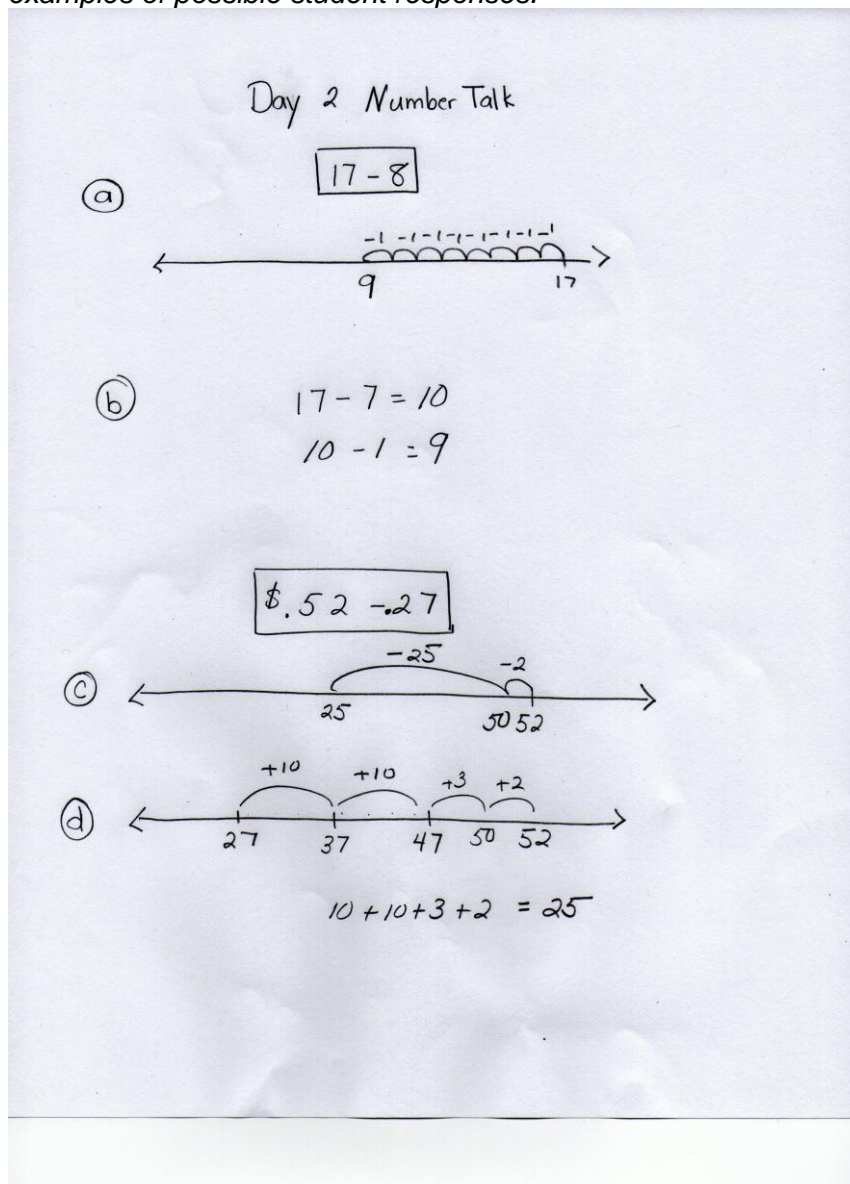 examples of possible student responses.
Day 2 Number Talk
17 - 8
a
-1 -1 -1 -1 -1 -1 -1 -1
9 17
b
17 - 7 = 10
10 - 1 = 9
$.52 -.27
-25 -2
c
25 50 52
+10 +10 +3 +2
d
27 37 47 50 52
10 + 10 + 3 + 2 = 25